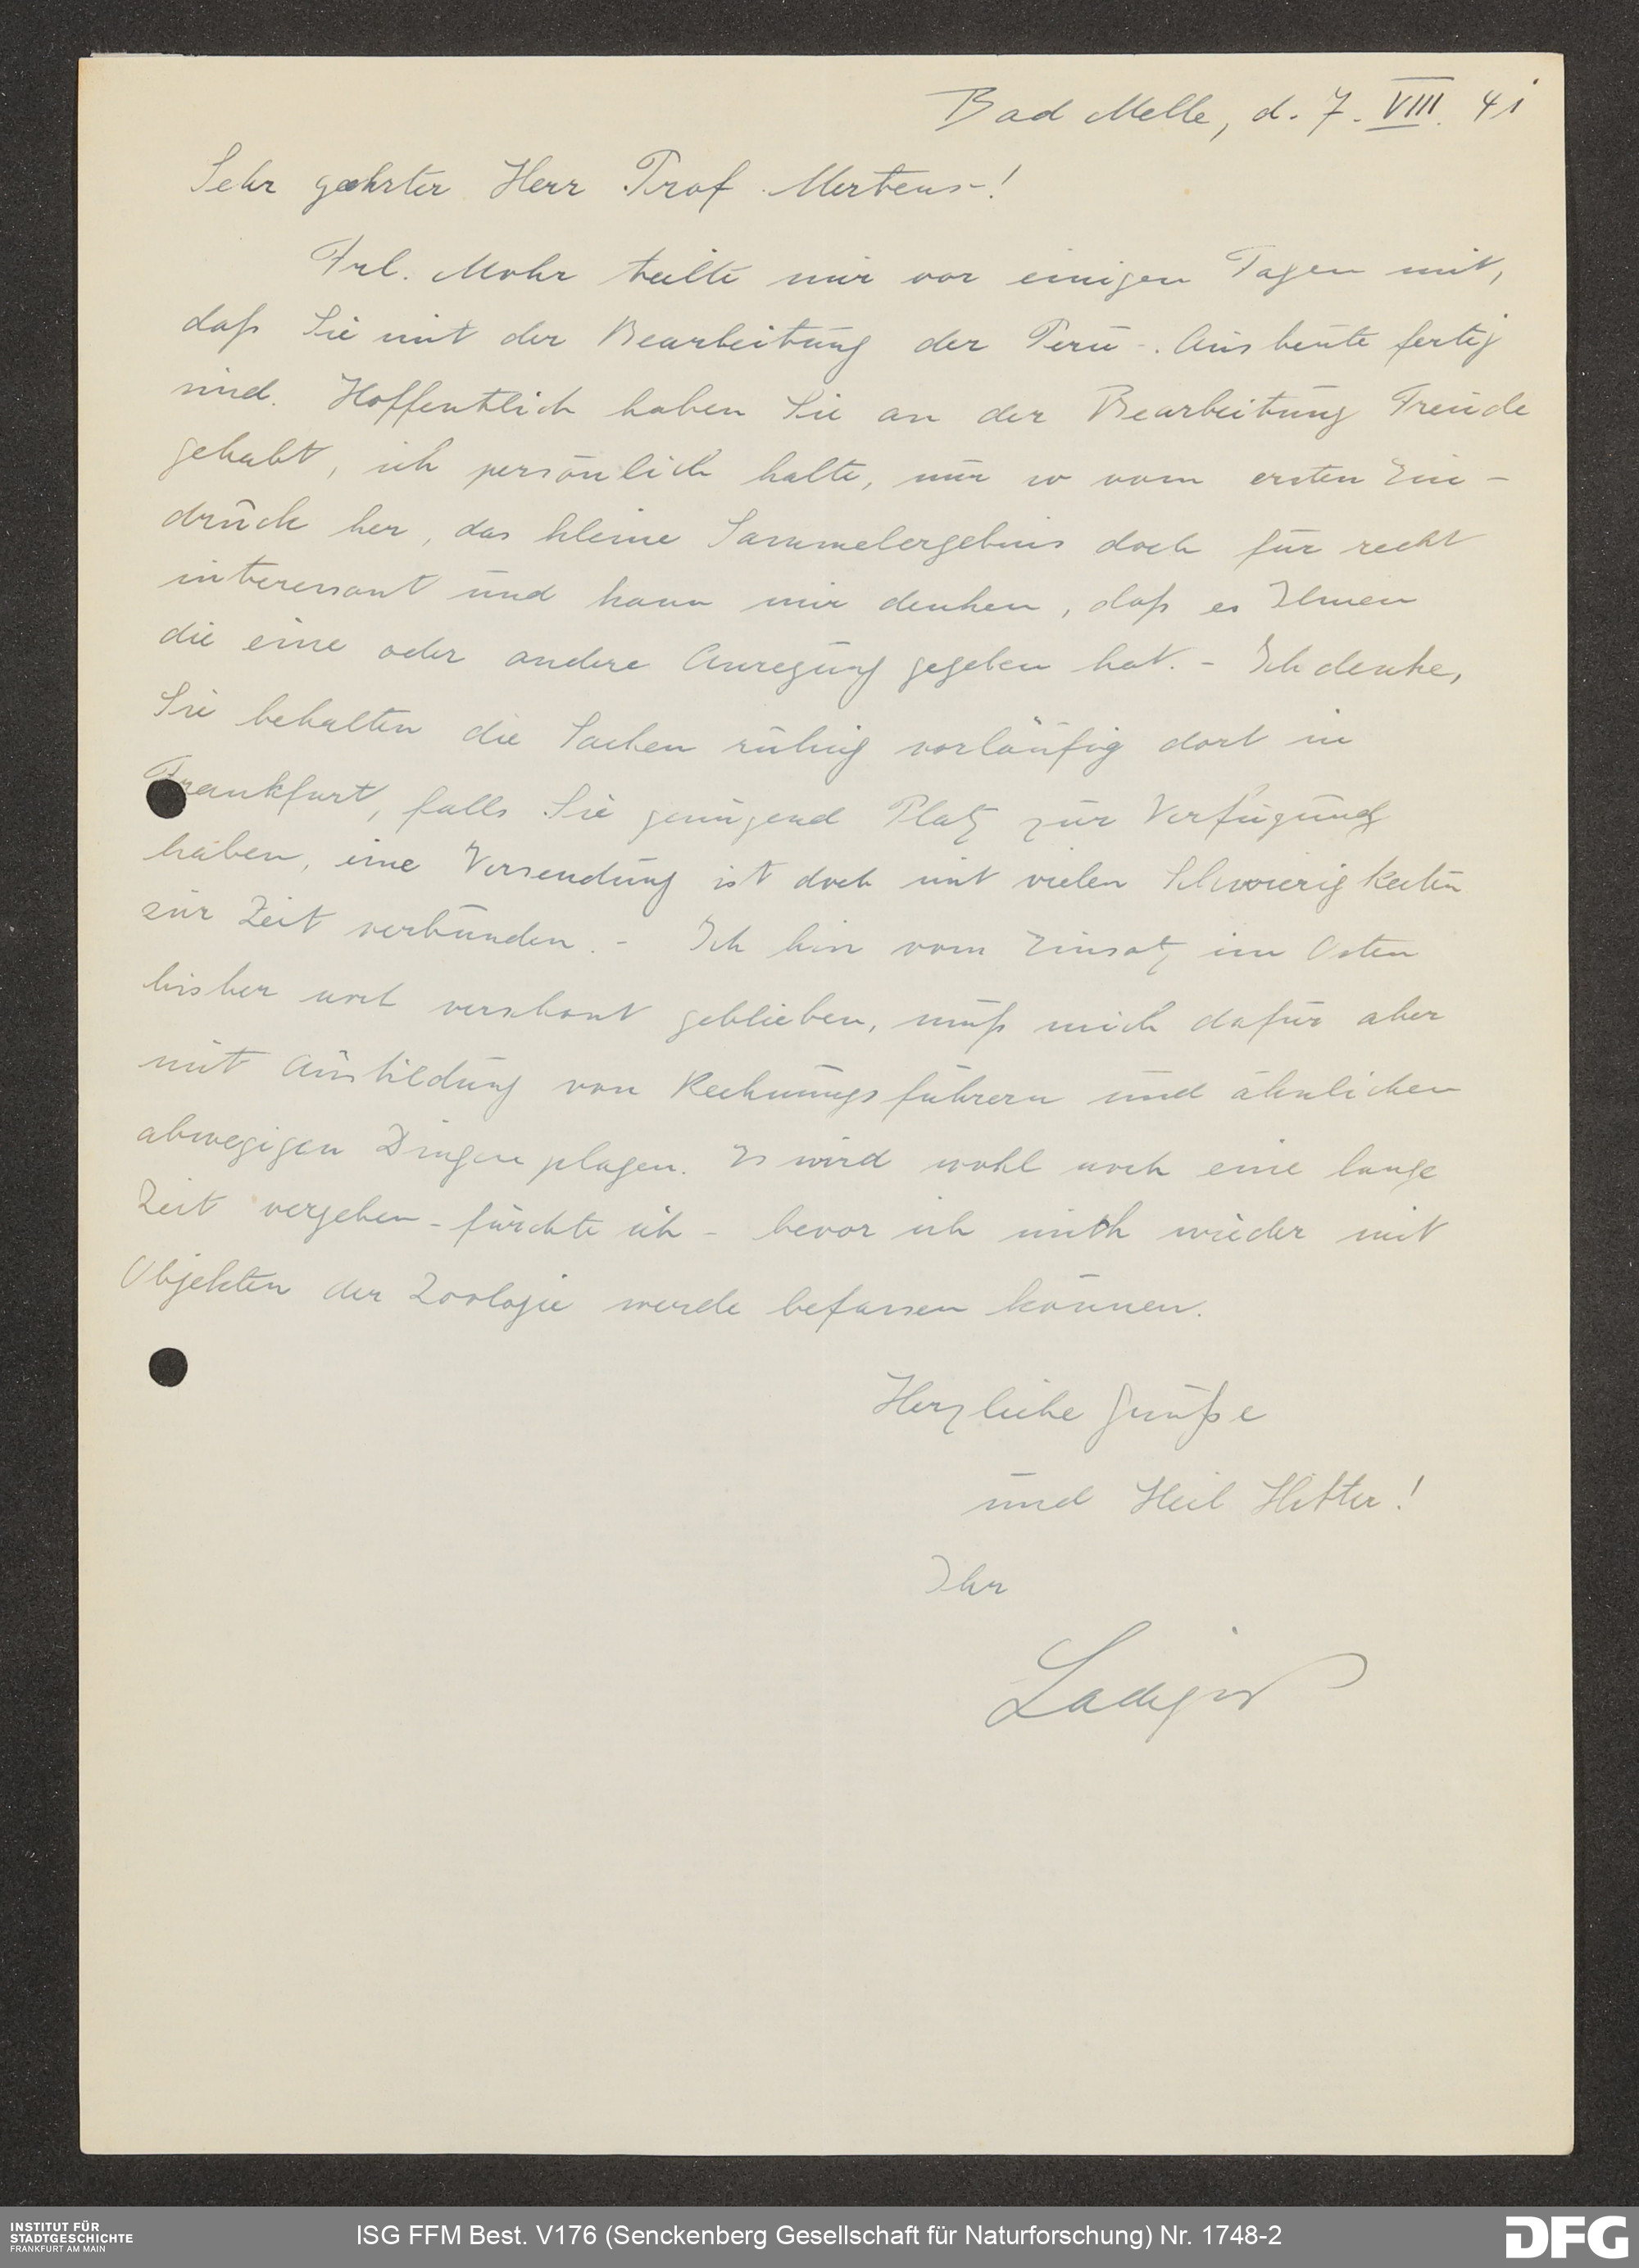 Bad Melle, d. 7. VIII. 41
Sehr geehrter Herr Prof. Mertens!
Frl. Mohr teilte mir vor einigen Tagen mit,
daß Sie mit der Bearbeitung der Peru-Ausbeute fertig
sind. Hoffentlich haben Sie an der Bearbeitung Freude
gehabt, ich persönlich halte, nur so vom ersten Ein-
druck her, das kleine Sammelergebnis doch für recht
interessant und kann mir denken, daß es Ihnen
die eine oder andere Anregung gegeben hat. - Ich denke,
Sie behalten die Sachen ruhig vorläufig dort in
Frankfurt, falls Sie genügend Platz zur Verfügung
haben, eine Versendung ist doch mit vielen Schwierigkeiten
zur Zeit verbunden. - Ich bin vom Einsatz im Osten
bisher noch verschont geblieben, muß mich dafür aber
mit Ausbildung von Rechnungsführern und ähnlichen
abwegigen Dingen plagen. Es wird wohl noch eine lange
Zeit vergehen - fürchte ich - bevor ich mich wieder mit
Objekten der Zoologie werde befassen können.
Herzliche Grüße
und Heil Hitler!
Ihr
Ladiges
INSTITUT FÜR
STADTGESCHICHTE
FRANKFURT AM MAIN
ISG FFM Best. V176 (Senckenberg Gesellschaft für Naturforschung) Nr. 1748-2
DFG